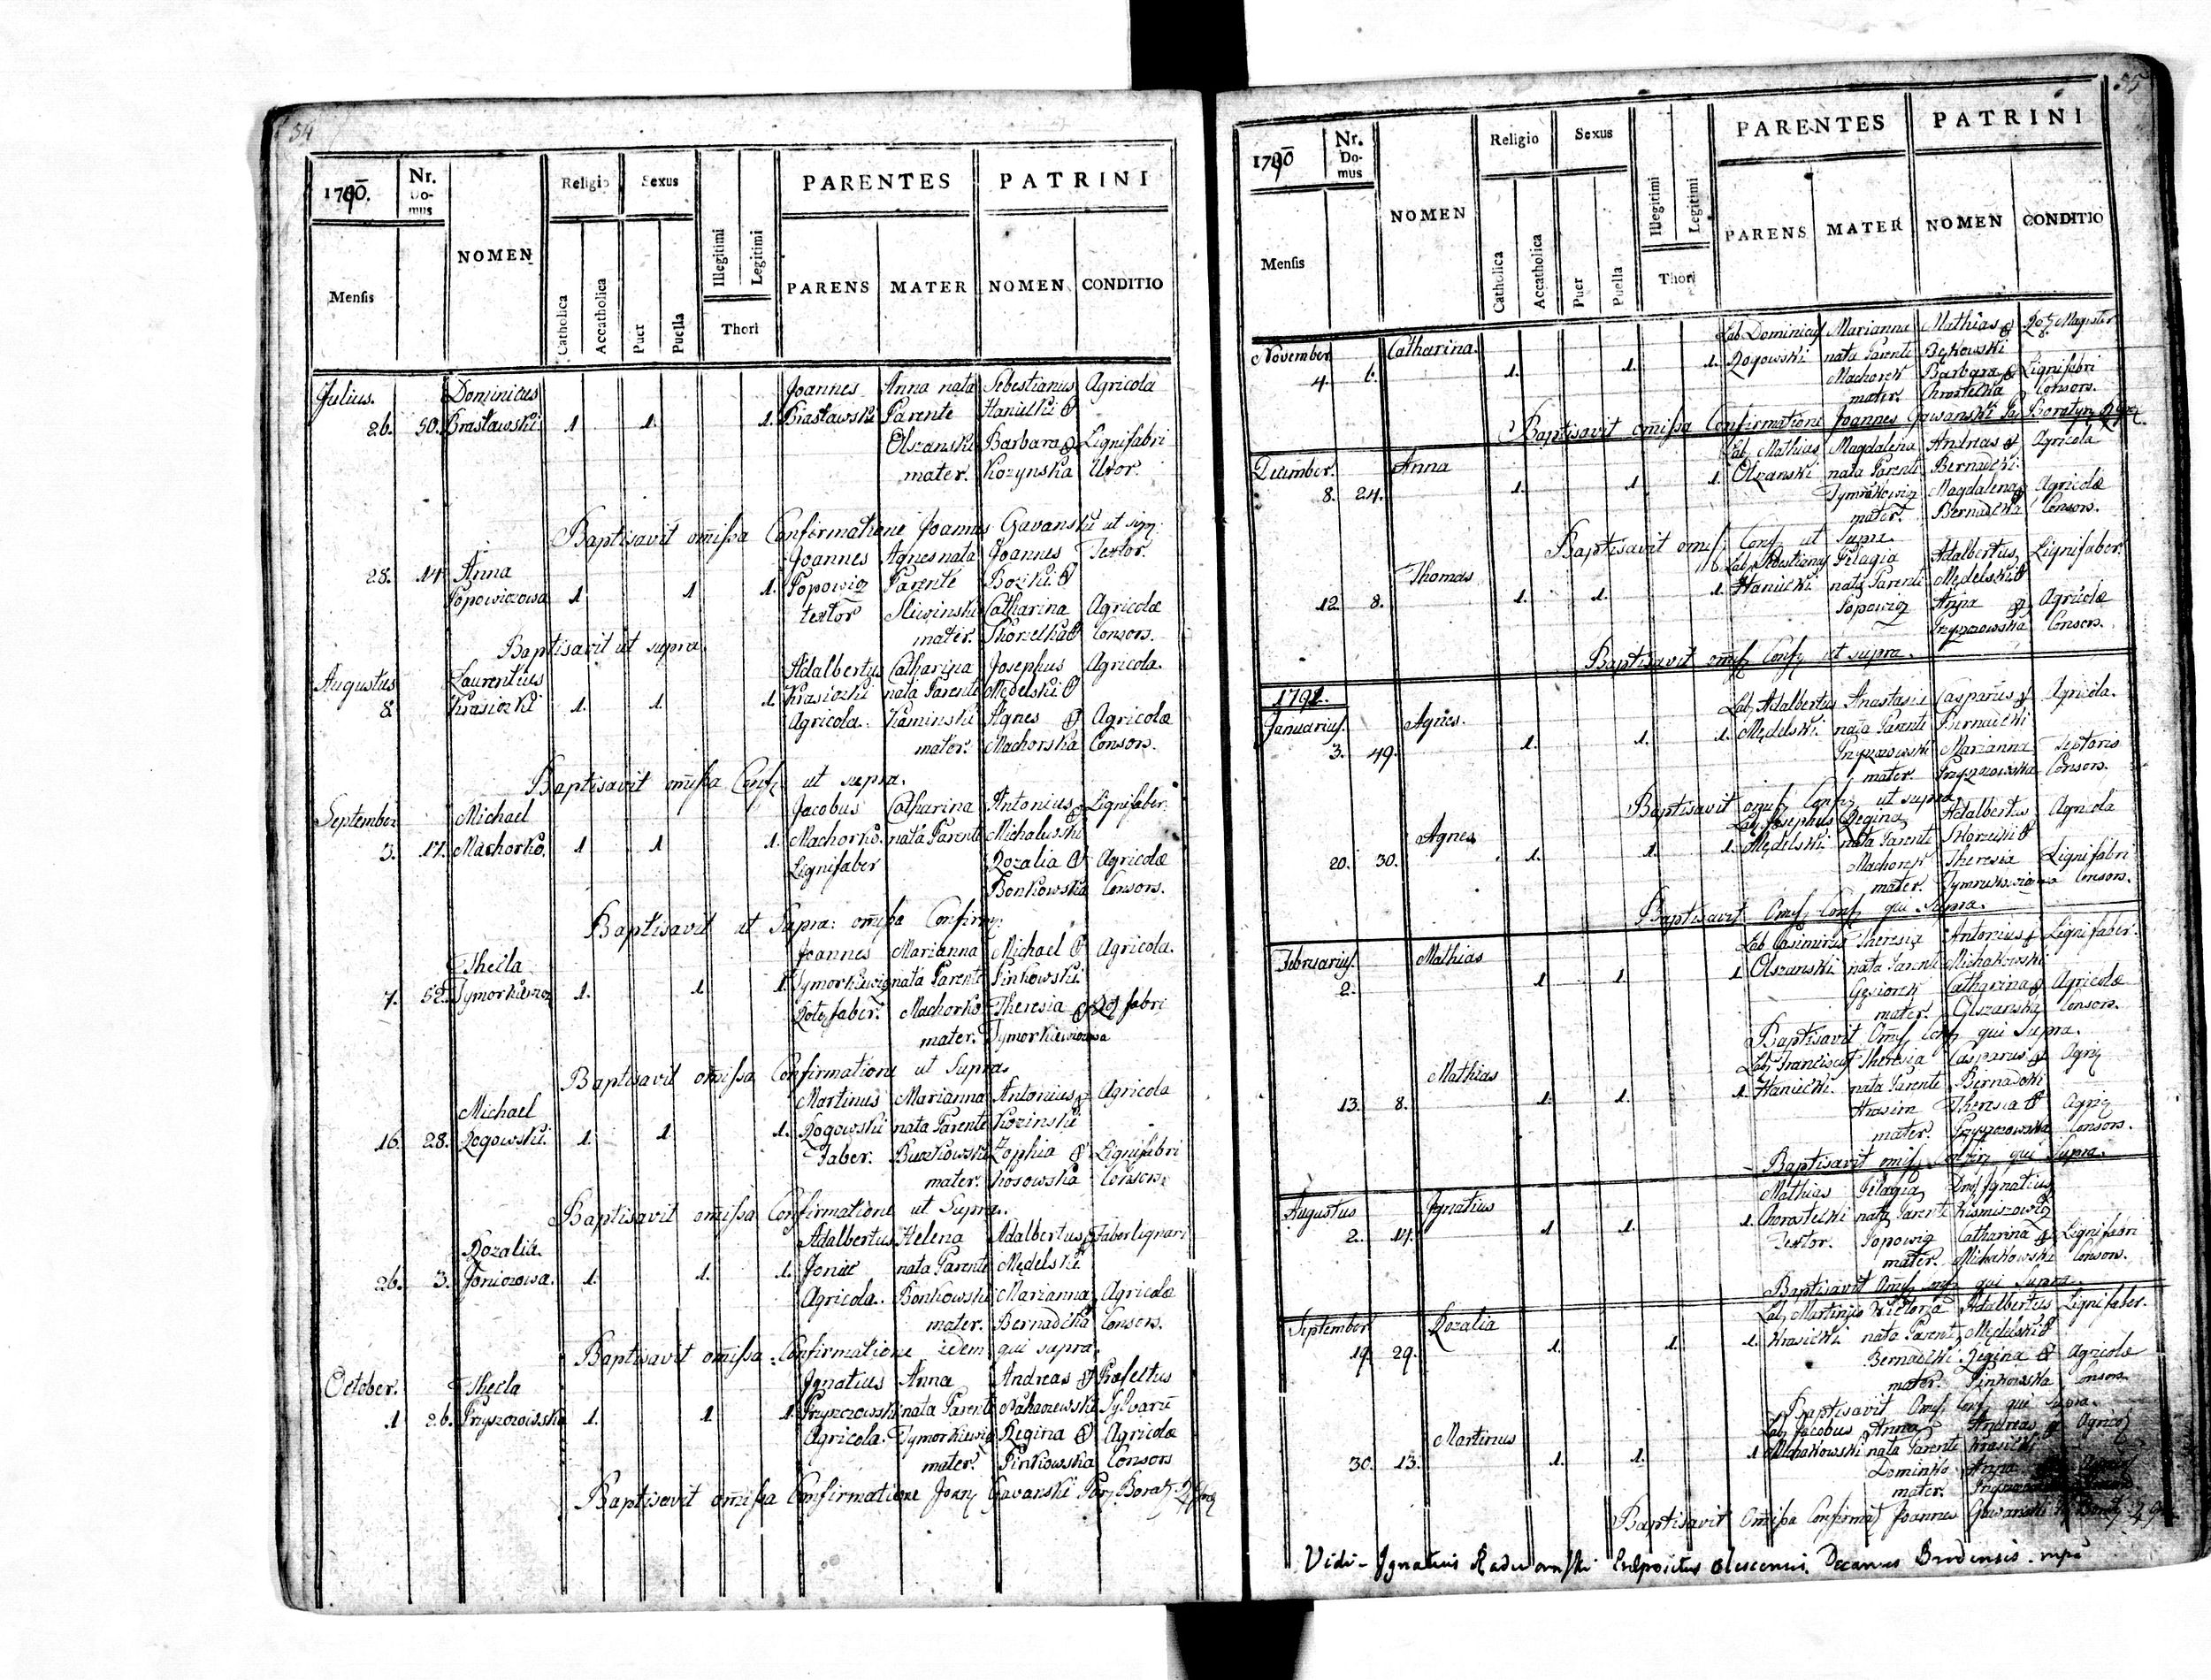 54
1790.
Nr. Do-mus
NOMEN
Religio
Sexus
PARENTES
PATRINI
Mensis
Catholica
Accatholica
Puer
Puella
Illegitimi
Legitimi
Thori
PARENS
MATER
NOMEN
CONDITIO
Julius. Dominicus Joannes Anna nata Sebestianus Agricola
26. 50. Brasławski 1 1. 1. Brasławski Parente Haniecki &
Olszanski Barbara & Lignifabri
mater. Kozynska Uxor.
Baptisavit omissa Confirmatione Joannes Gavanski ut supr.
Joannes Agnes nata Joannes Textor.
28. 14. Anna Popowiczowa 1 1 1. Popowicz Parente Bozki &
textor Sliwinski Catharina Agricolæ
mater. Skorzelka & Consors.
Baptisavit ut supra.
Augustus Laurentius Adalbertus Catharina Josephus Agricola.
8. Krasicki 1. 1. 1. Krasicki nata Parente Mędelski &
Agricola. Kaminski Agnes & Agricolæ
mater. Machorska Consors.
Baptisavit omissa Conf. ut supra.
September Michael Jacobus Catharina Antonius & Lignifaber.
3. 17. Machorko. 1 1 1. Machorko. nata Parente Michaluski
Lignifaber Rozalia & Agricolæ
Bonkowska Consors.
Baptisavit ut Supra: omissa Confirm:
Joannes Marianna Michael & Agricola.
Thecla
7. 52. Tymorkiewicz 1. 1 1. Tymorkiewicz nata Parente Pinkowski.
Rotefaber. Machorko Theresia & Rot fabri
mater. Tymorkiewiczowa
Baptisavit omissa Confirmatione ut Supra.
Michael Martinus Marianna Antonius & Agricola
16. 28. Rogowski. 1. 1. 1. Rogowski nata Parente Kozinski
Faber. Buczkowski Zophia & Lignifabri
mater. Kosowska Consors.
Baptisavit omissa Confirmatione ut Supra.
Rozalia. Adalbertus Helena Adalbertus & Faber lignari
26. 3. Joniczowa. 1. 1. 1. Jonic nata Parente Mędelski
Agricola. Bonkowski Marianna Agricolæ
mater. Bernadcka Consors.
Baptisavit omissa Confirmatione idem qui supra.
October. Thecla Ignatius Anna Andreas & Præfectus
1 26. Przyszowska 1. 1 1. Przyszowski nata Parente Sylvarū
Agricola. Tymorkiewicz Regina & Agricolæ
mater. Pinkowska Consors
Baptisavit omissa Confirmatione Joan: Gavanski Par: Borat:
55
1790
Nr. Do-mus
NOMEN
Religio
Sexus
PARENTES
PATRINI
Mensis
Catholica
Accatholica
Puer
Puella
Illegitimi
Legitimi
Thori
PARENS
MATER
NOMEN
CONDITIO
November Catharina. Lab. Dominicus Marianna Mathias & Rot. Magister
4. 6. 1. 1. 1. Rogowski nata Parente Bękowski
Machorek Barbara & Lignifabri
mater. Chrostecka Consors.
Baptisavit omissa Confirmatione Joannes Gawanski Par Boratyn
December. Anna Lab. Mathias Magdalena Andreas & Agricola
8. 24. 1. 1 1. Olszanski nata Parente Bernadcki.
Magdalena & Agricolæ
mater. Bernadcka Consors.
Baptisavit omis: Conf. ut Supra.
Thomas Lab. Sebestianus Pelagia Adalbertus Lignifaber.
12. 8. 1. 1. 1. Haniecki nata Parente Mędelski &
Popowicz Anna & Agricolæ
Przyszowska Consors.
Baptisavit omis: Conf. ut supra.
1791.
Januarius. Agnes. Lab. Adalbertus Anastasia Casparus & Agricola.
3. 49. 1. 1. 1. Mędelski. nata Parente Bernadcki
Przyszowski Marianna Textoris
mater Przyszowska Consors.
Baptisavit omis: Conf. ut supra.
Agnes Lab. Josephus Regina Adalbertus Agricola
20. 30. 1. 1. 1. Mędelski nata Parente Skorzecki &
Machorek Theresia Lignifabri
mater. Consors.
Baptisavit Omis: Conf. qui Supra.
Februarius. Mathias Lab. Casimirus Theresia Antonius & Lignifaber.
2. 1 1. 1 Olszanski nata Parente Michałowski
Gęsiorek Catharina & Agricolæ
mater. Olszanska Consors.
Baptisavit Omis: Conf. qui Supra.
Mathias Lab. Franciscus Theresia Casparus & Agri:
13. 8. 1. 1. 1 Haniecki. nata Parente Bernadcki
Theresia & Agri:
mater. Przyszowska Consors.
Baptisavit omis: Conf. qui Supra.
Augustus Ignatius Mathias Pelagia Ignatius
2. 14. 1 1. 1. Chrostecki nata Parente
Textor. Popowicz Catharina & Lignifabri
mater. Michałowska Consors.
Baptisavit Omis: Conf. qui Supra.
September Rozalia Lab. Martinus Victoria Adalbertus Lignifaber.
19. 29. 1. 1. 1. Krasicki nata Parente Mędelski &
Bernadcki Regina & Agricolæ
mater. Pinkowska Consors.
Baptisavit Omis: Conf. qui Supra.
Martinus Lab. Jacobus Anna Andreas & Agrico:
30. 13. 1. 1. 1 Michałowski nata Parente Krasicki
Dominko Anna
mater.
Baptisavit Omissa Confirmat: Joannes Gawanski
Vidi - Ignatius Præpositus Olescensis. Decanus Brodensis. mpa